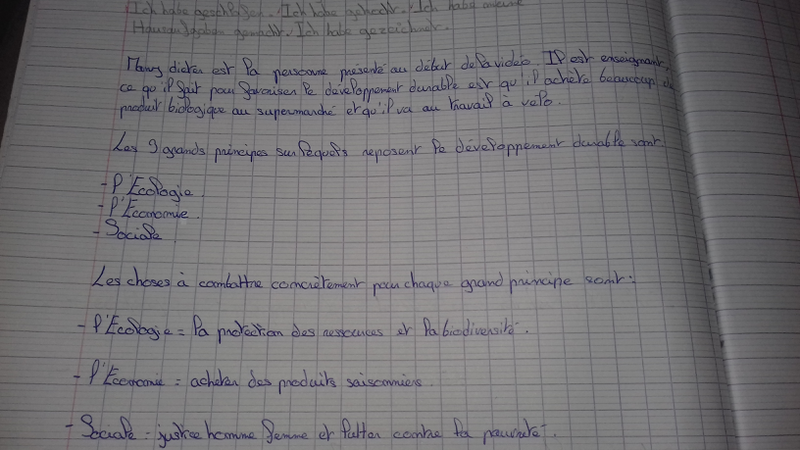 Ich habe geschlafen. Ich habe gekocht. Ich habe meine
Hausaufgaben gemacht. Ich habe gezeichnet.
dieter est la personne présenté au début de la vidéo. Il est enseignant,
ce qu'il fait pour favoriser le développement durable est qu'il achète beaucoup de
produit biologique au supermarché et qu'il va au travail à vélo.
Les 3 grands principes sur lequels reposent le développement durable sont
- l'Ecologie
- l'Economie.
- Sociale
Les choses à combattre concrètement pour chaque grand principe sont :
- l'Ecologie = la protection des ressources et la biodiversité.
- l'Economie = acheter des produits saisonniers
- Sociale = justice homme femme et lutter contre la pauvreté.